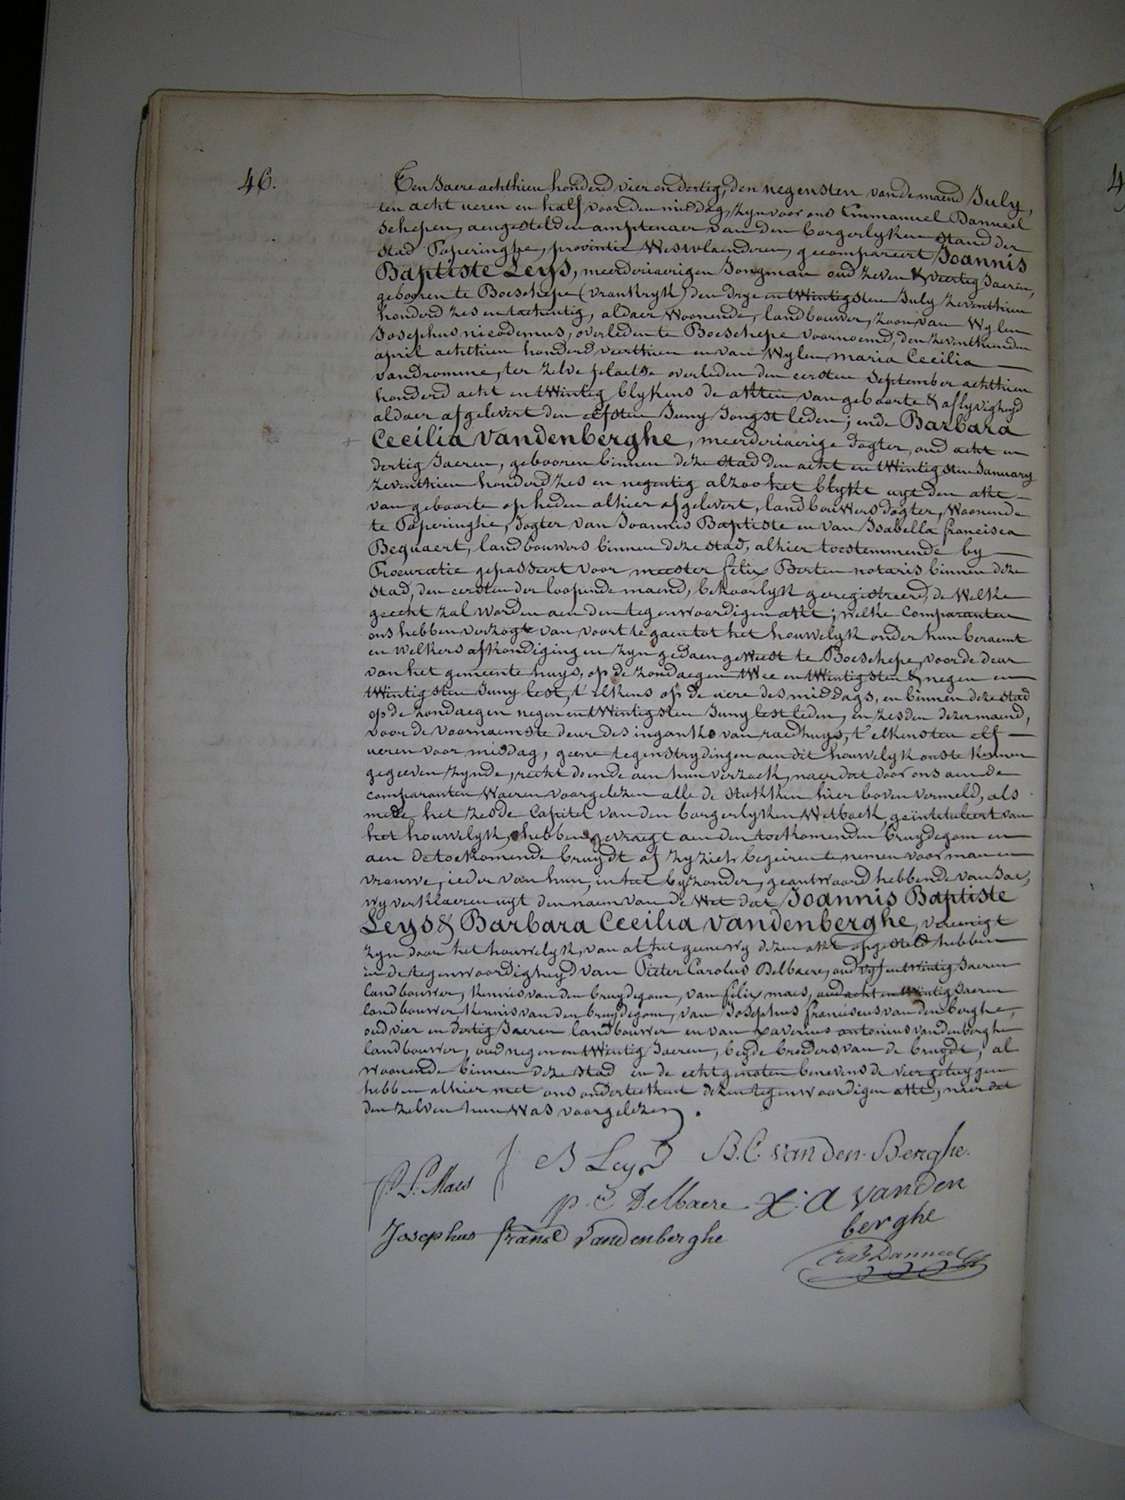 46.
Ten Jaere achthien honderd vier en dertig, den negensten van de maend July,
ten acht ueren en half voor den middag, zyn voor ons Emmanuel Danneel
schepen, aengestelden amptenaer van den borgerlyken stand der
stad Poperinghe, provintie Westvlaenderen, gecompareert Joannis
Baptiste Leys, meerderjaerigen Jongman oud zeven & veertig Jaeren,
gebooren te Boeschepe (vrankryk) den drye en twintigsten July zeventhien
honderd zes en tachentig, aldaer woonende, landbouwer, zoon van wylen
Josephus nicodemus, overleden te Boeschepe voornoemd, den zeventhienden
april achthien honderd veerthien en van wylen maria Cecilia
vandromme, ter zelve plaetse overleden den eersten September achthien
honderd acht en twintig blykens de akten van geboorte & aflyvighyd
aldaer afgelevert den elfsten Juny Jongst leden; ende Barbara
Cecilia vandenberghe, meerderjaerige dogter, oud acht en
dertig Jaeren, gebooren binnen deze stad den acht en twintigsten January
zeventhien honderd zes en negentig alzoo het blykt uyt den akte
van geboorte op heden alhier afgelevert, landbouwers dogter, woonende
te Poperinghe, dogter van Joannis Baptiste en van Isabella francisca
Bequaert, landbouwers binnen deze stad, alhier toestemmende by
Procuratie gepasseert voor meester felix Berten notaris binnen deze
stad, den eersten der loopende maend, behoorlyk geregistreerd, de welke
geecht zal worden aen den tegenwoordigen akt; welke comparanten
ons hebben verzogt van voort te gaen tot het houwelyk onder hun beraemt
en welkers afkondigingen zyn gedaen geweest te Boeschepe, voor de deur
van het gemeente huys, op de zondaegen twee en twintigsten & negen en
twintigsten Juny lest, t'elkens op de uere des middags, en binnen deze stad
op de zondaegen negen en twintigsten Juny lest leden, en zesden dezer maend,
voor de voornaemste deur des ingangs van raedhuys, t'elkensten elf
ueren voor middag, geene tegenstrydingen aen dit houwelyk onste kennen
gegeeven zynde, recht doende aen hun verzoek, naer dat door ons aen de
comparanten waeren voorgelezen alle de stukken hier boven vermeld, als
mede het zesde Capitel van den borgerlyken Wetboek, geïntituleert van
het houwelyk, hebben gevraegt aen den toekomenden bruydegom en
aen de toekomende bruydt of zy zich begeiren te nemen voor man en
vrouwe, ieder van hun, in het byzonder, geantwoord hebbende van Jae,
wy verklaeren uyt den naem van de Wet dat Joannis Baptiste
Leys & Barbara Cecilia vandenberghe, vereenigt
zyn door het houwelyk, van al het geene wy dezen akt opgesteld hebben
in de tegenwoordighyd van Pieter Carolus Delbaere, oud vyf en twintig Jaeren
landbouwer, kennis van den bruydegom, van felix maes, oud acht en twintig Jaeren
landbouwer, kennis van den bruydegom, van Josephus franciscus vandenberghe,
oud vier en dertig Jaeren landbouwer en van xaverius antonius vandenberghe
landbouwer, oud negen en twintig Jaeren, beyde broeders van de bruydt, al
woonende binnen deze stad en de echtgenoten benevens de vier getuygen
hebben alhier met ons onderteekent dezen tegenwoordigen akte, naer dat
den zelven hun was voorgelezen.
J B Leys B. C. vanden-Berghe.
P. F. Maes
p. C Delbaere X: A vanden
berghe
Josephus frans vandenberghe
E. Danneel